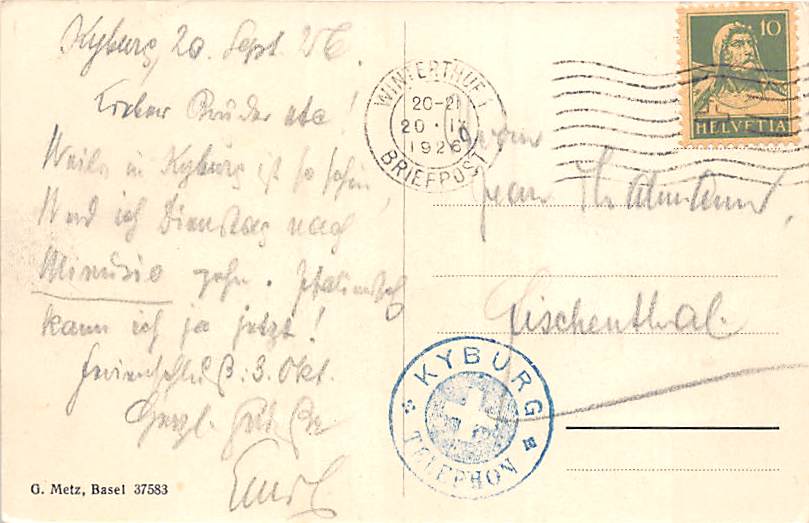 Kyburg, 20. Sept. 26.
Lieber Bruder etc!
Weils in Kyburg ist so schön,
Werd ich Dienstag nach
Minusio gehn. Italienisch
kann ich ja jetzt!
Ferienschluß: 3. Okt.
Herzl. Grüße
Emil
G. Metz, Basel 37583
WINTERTHUR 1
20-21
20. IX
1926
BRIEFPOST
10
HELVETIA
Herrn
Jean
Fischenthal.
KYBURG
TELEPHON